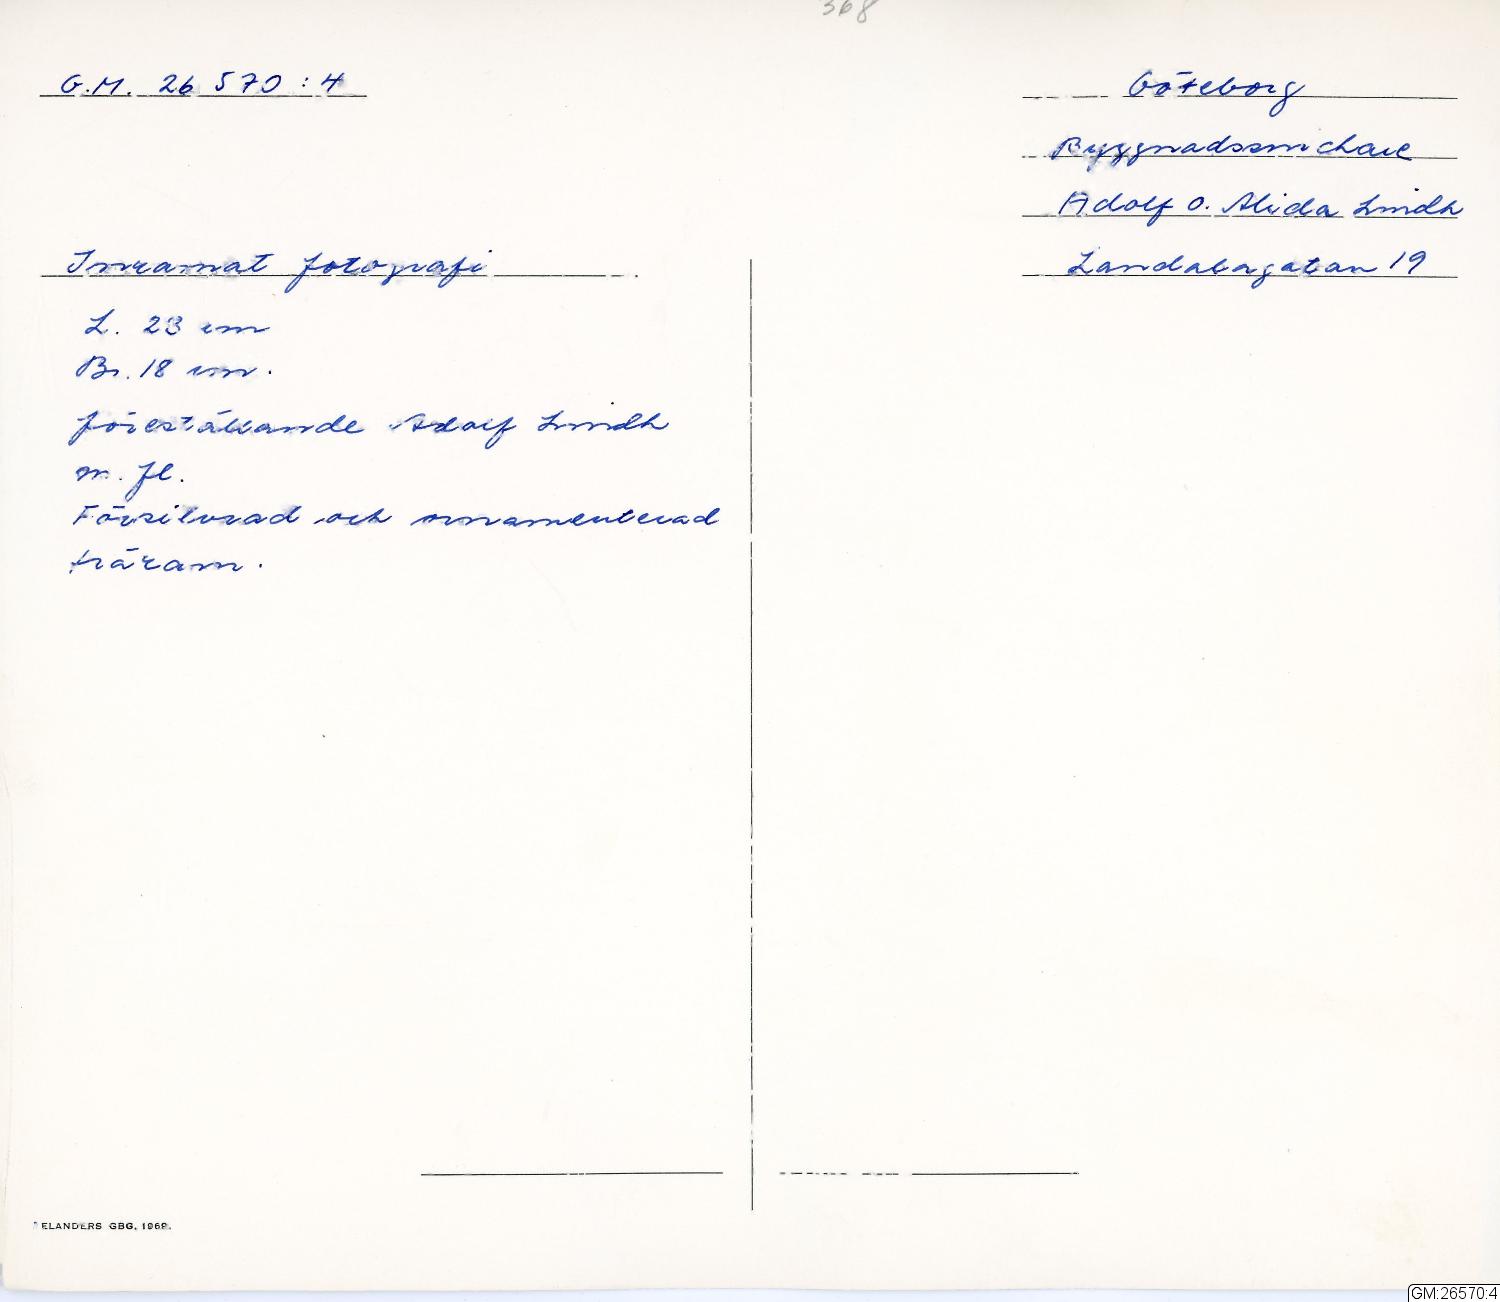 368
G.M. 26 570 : 4
Göteborg
Byggnadssnickare
Adolf o. Alida Lindh
Landalagatan 19
Inramat fotografi
L. 23 cm
Br. 18 cm.
föreställande Adolf Lindh
m. fl.
Försilvrad och ornamenterad
träram.
ELANDERS GBG, 1969.
GM:26570:4